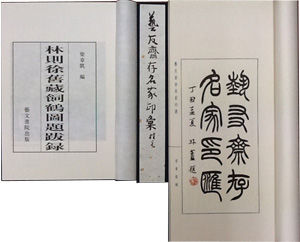 梁章凱 編
林則徐舊藏飼鶴圖題跋録
藝文書院出版
藝友齋存名家印彙
藝友齋存
名家印匯
丁丑孟夏